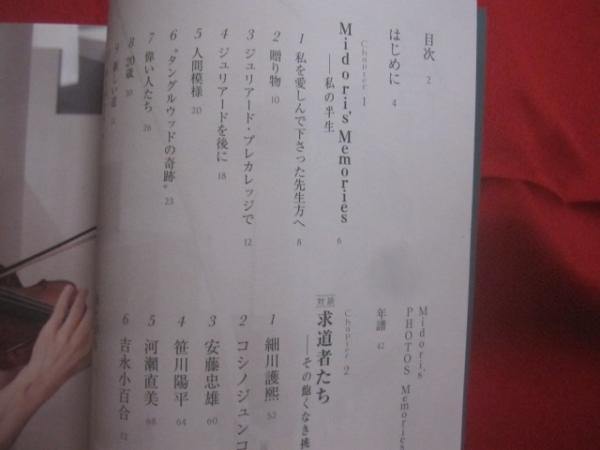 目次 2
はじめに 4
Chapter 1
Midori's Memories 6
——私の半生
1 私を愛しんで下さった先生方へ 8
2 贈り物 10
3 ジュリアード・プレカレッジで 12
4 ジュリアードを後に 18
5 人間模様 20
6 “タングルウッドの奇跡” 23
7 偉い人たち 26
8 20歳 30
Midori's PHOTOS Memories
年譜 42
Chapter 2
対談 求道者たち
——その飽くなき挑
1 細川護熙 52
2 コシノジュンコ
3 安藤忠雄 60
4 笹川陽平 64
5 河瀬直美 68
6 吉永小百合 72